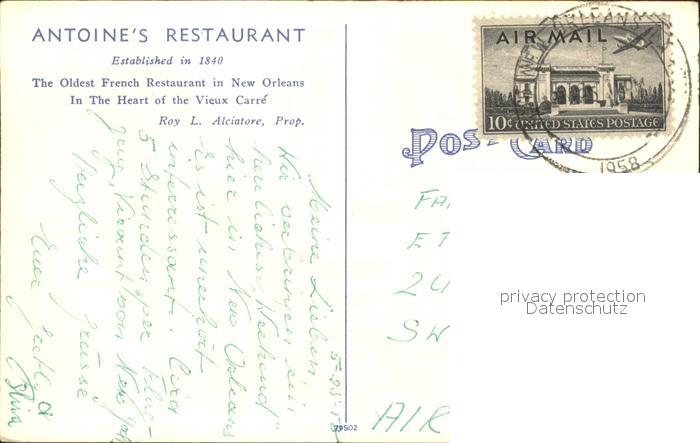 ANTOINE'S RESTAURANT
Established in 1840
The Oldest French Restaurant in New Orleans
In The Heart of the Vieux Carré
Roy L. Alciatore, Prop.
5-25-58
Meine Lieben
Wir verbringen ein
herrliches "Weekend"
hier in New Orleans
Es ist unerhört
interessant. Circa
5 Stunden per Flug-
zeug "Viscount" von New York
Herzliche Grüsse
Euer
79502
POST CARD
AIR MAIL
10¢ UNITED STATES POSTAGE
NEW ORLEANS
1958
FA
ET
ZU
SW
AIR
privacy protection
Datenschutz